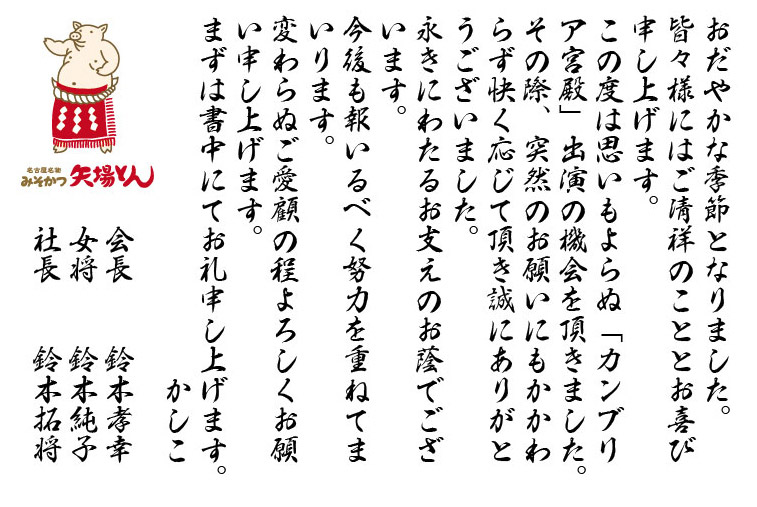 おだやかな季節となりました。
皆々様にはご清祥のこととお喜び
申し上げます。
この度は思いもよらぬ「カンブリ
ア宮殿」出演の機会を頂きました。
その際、突然のお願いにもかかわ
らず快く応じて頂き誠にありがと
うございました。
永きにわたるお支えのお蔭でござ
います。
今後も報いるべく努力を重ねてま
いります。
変わらぬご愛顧の程よろしくお願
い申し上げます。
まずは書中にてお礼申し上げます。
かしこ
会長 鈴木孝幸
女将 鈴木純子
社長 鈴木拓将
名古屋名物
みそかつ 矢場とん